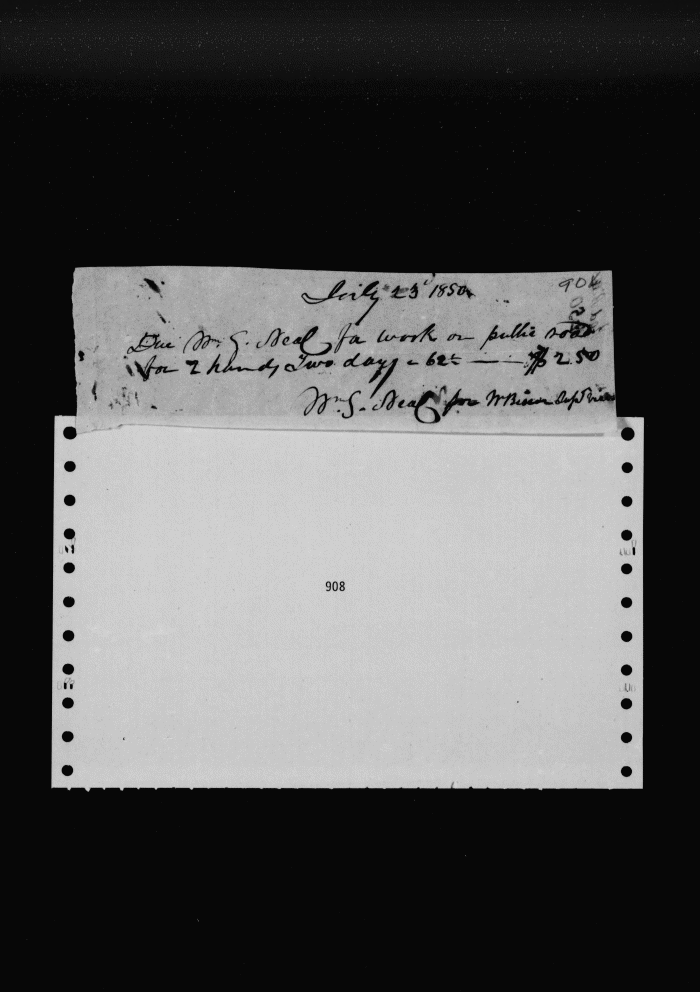 July 23 1850
908
Due Wm G. Neal for work on public road
for 2 hands Two days - 62½ — $ 2.50
Wm G. Neal for
908